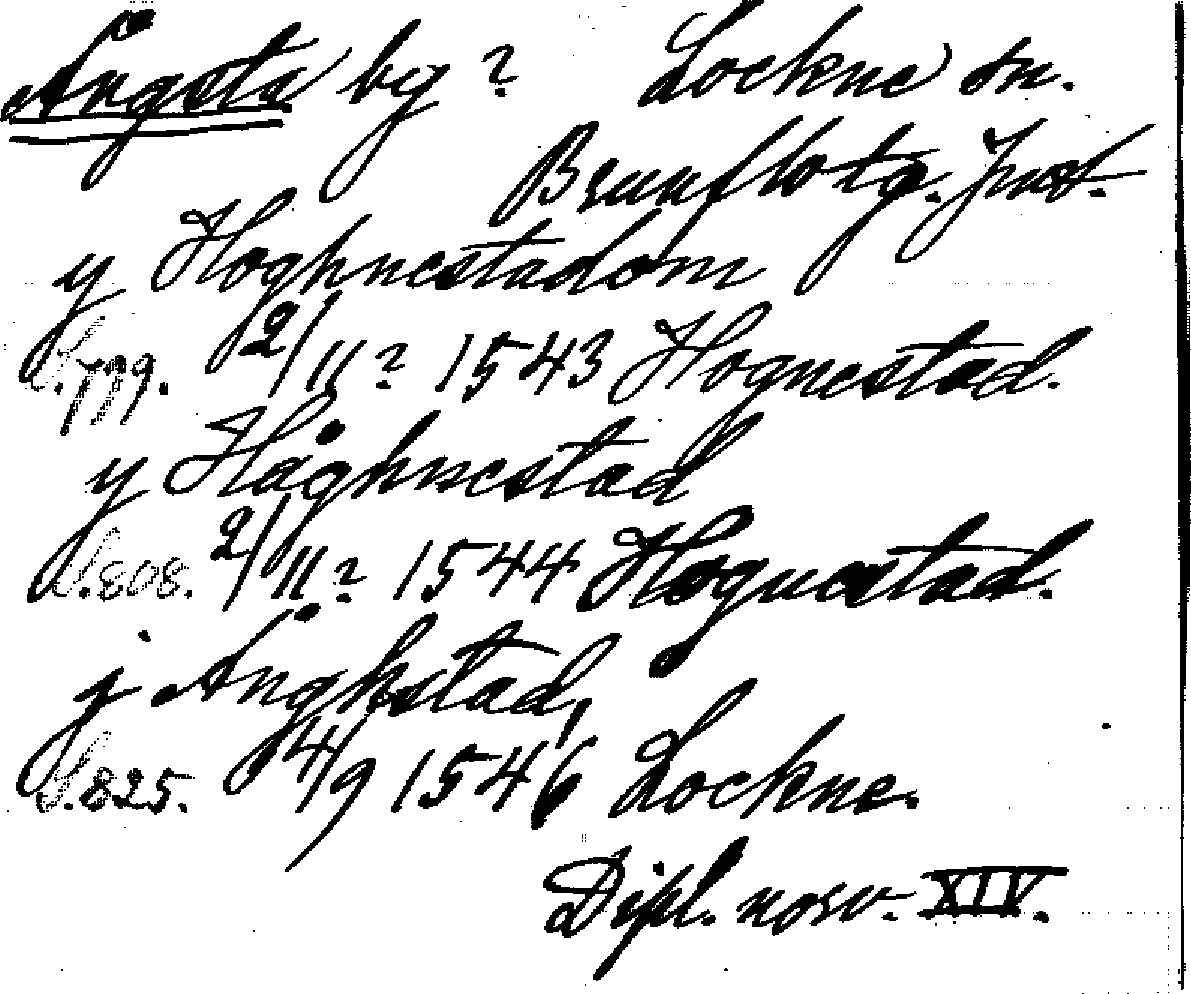 Ångsta by? Lockne sn.
Brunflo tg. Jmt.
y Hoghnestadom
S.799. 2/11? 1543 Hognestad.
y Håghnestad
S.808. 2/11? 1544 Hognestad.
j Ånghstad,
S.825. 4/9 1546 Lockne.
Dipl. norv. XIV.